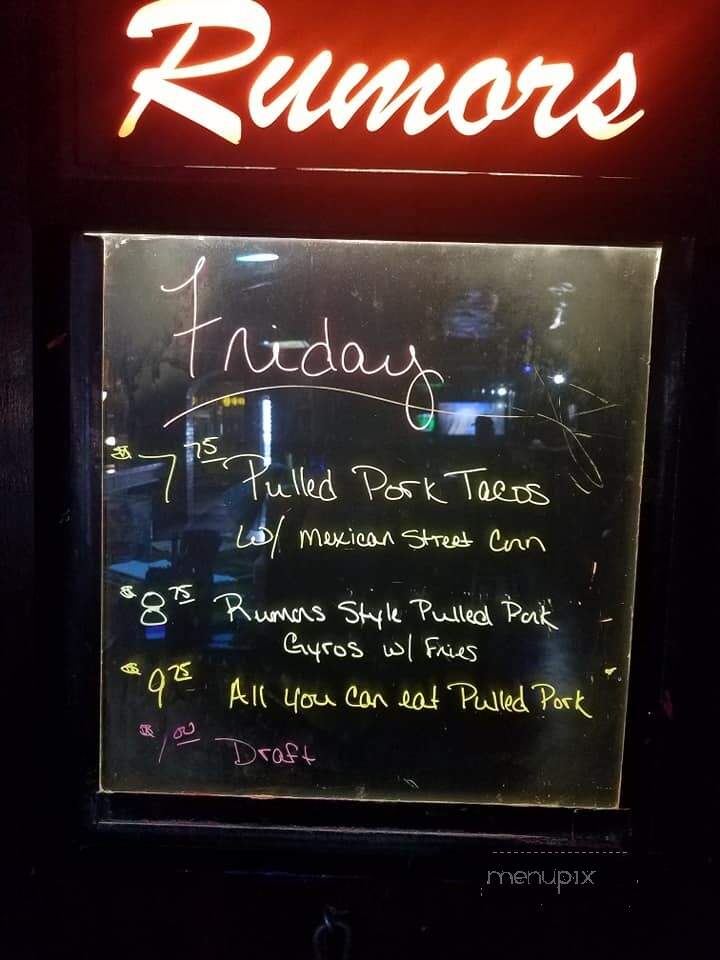 Rumors
Friday
$7.75 Pulled Pork Tacos
w/ Mexican Street Corn
$8.75 Rumors Style Pulled Pork
Gyros w/ Fries
$9.75 All you can eat Pulled Pork
$1.00 Draft
menupix